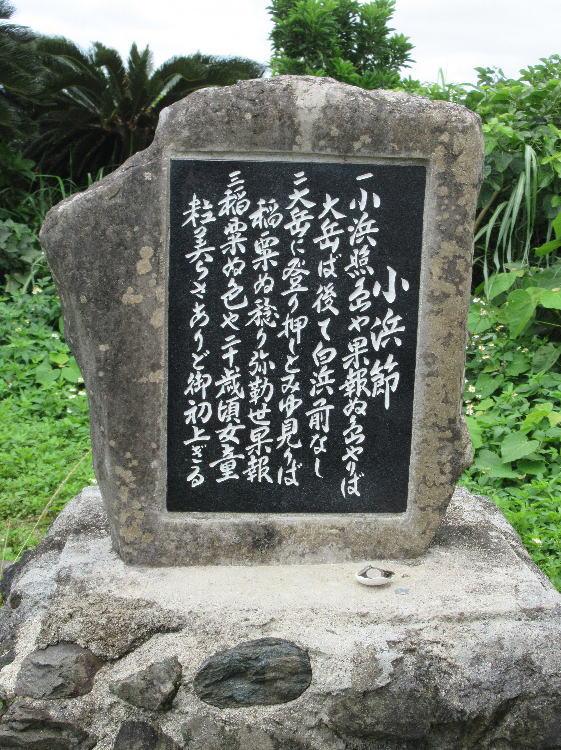 小浜節
一 小浜照る島や果報ぬ島やりば
大岳ば後て白浜前なし
二 大岳に登り押しとみゆ見りば
稲粟ぬ稔り弥勒世果報
三 稲粟ぬ色や二十歳頃女童
粒美らさありど御初上ぎる